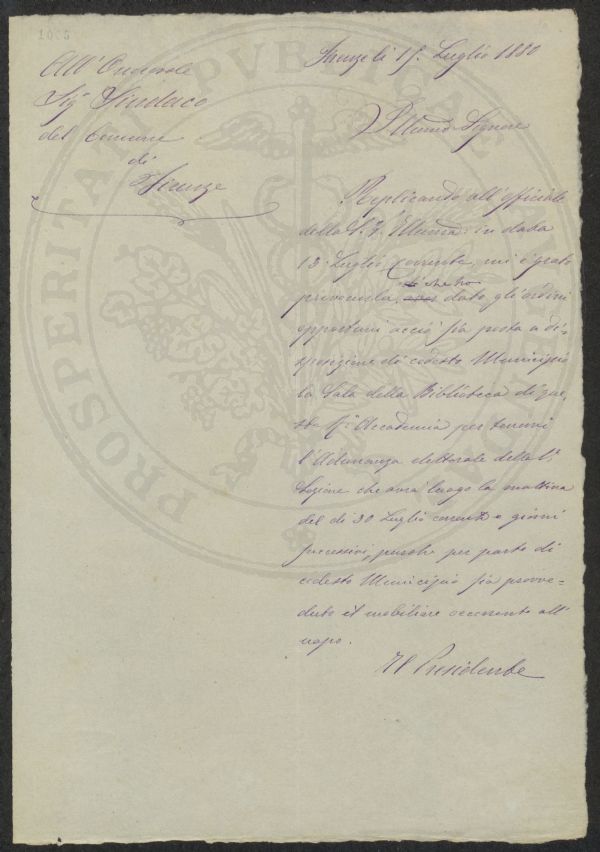 All' Onorevole
Sigr Sindaco
del Comune
di
Firenze
Firenze li 15. Luglio 1880
Illmo Signore
Replicando all'officiale
della S. V. Illma in data
13 Luglio corrente, mi è grato
prevenirla di che ho dato gli ordini
opportuni acciò sia posta a di=
sposizione di codesto Municipio
la Sala della Biblioteca di que=
sta Rl Accademia per tenervi
l'Adunanza elettorale della 1a
Sezione che avrà luogo la mattina
del dì 30 Luglio corrente e giorni
successivi, purché per parte di
codesto Municipio sia provve=
duto il mobiliare occorrente all'
uopo.
Il Presidente
PROSPERITATI PVBLICAE